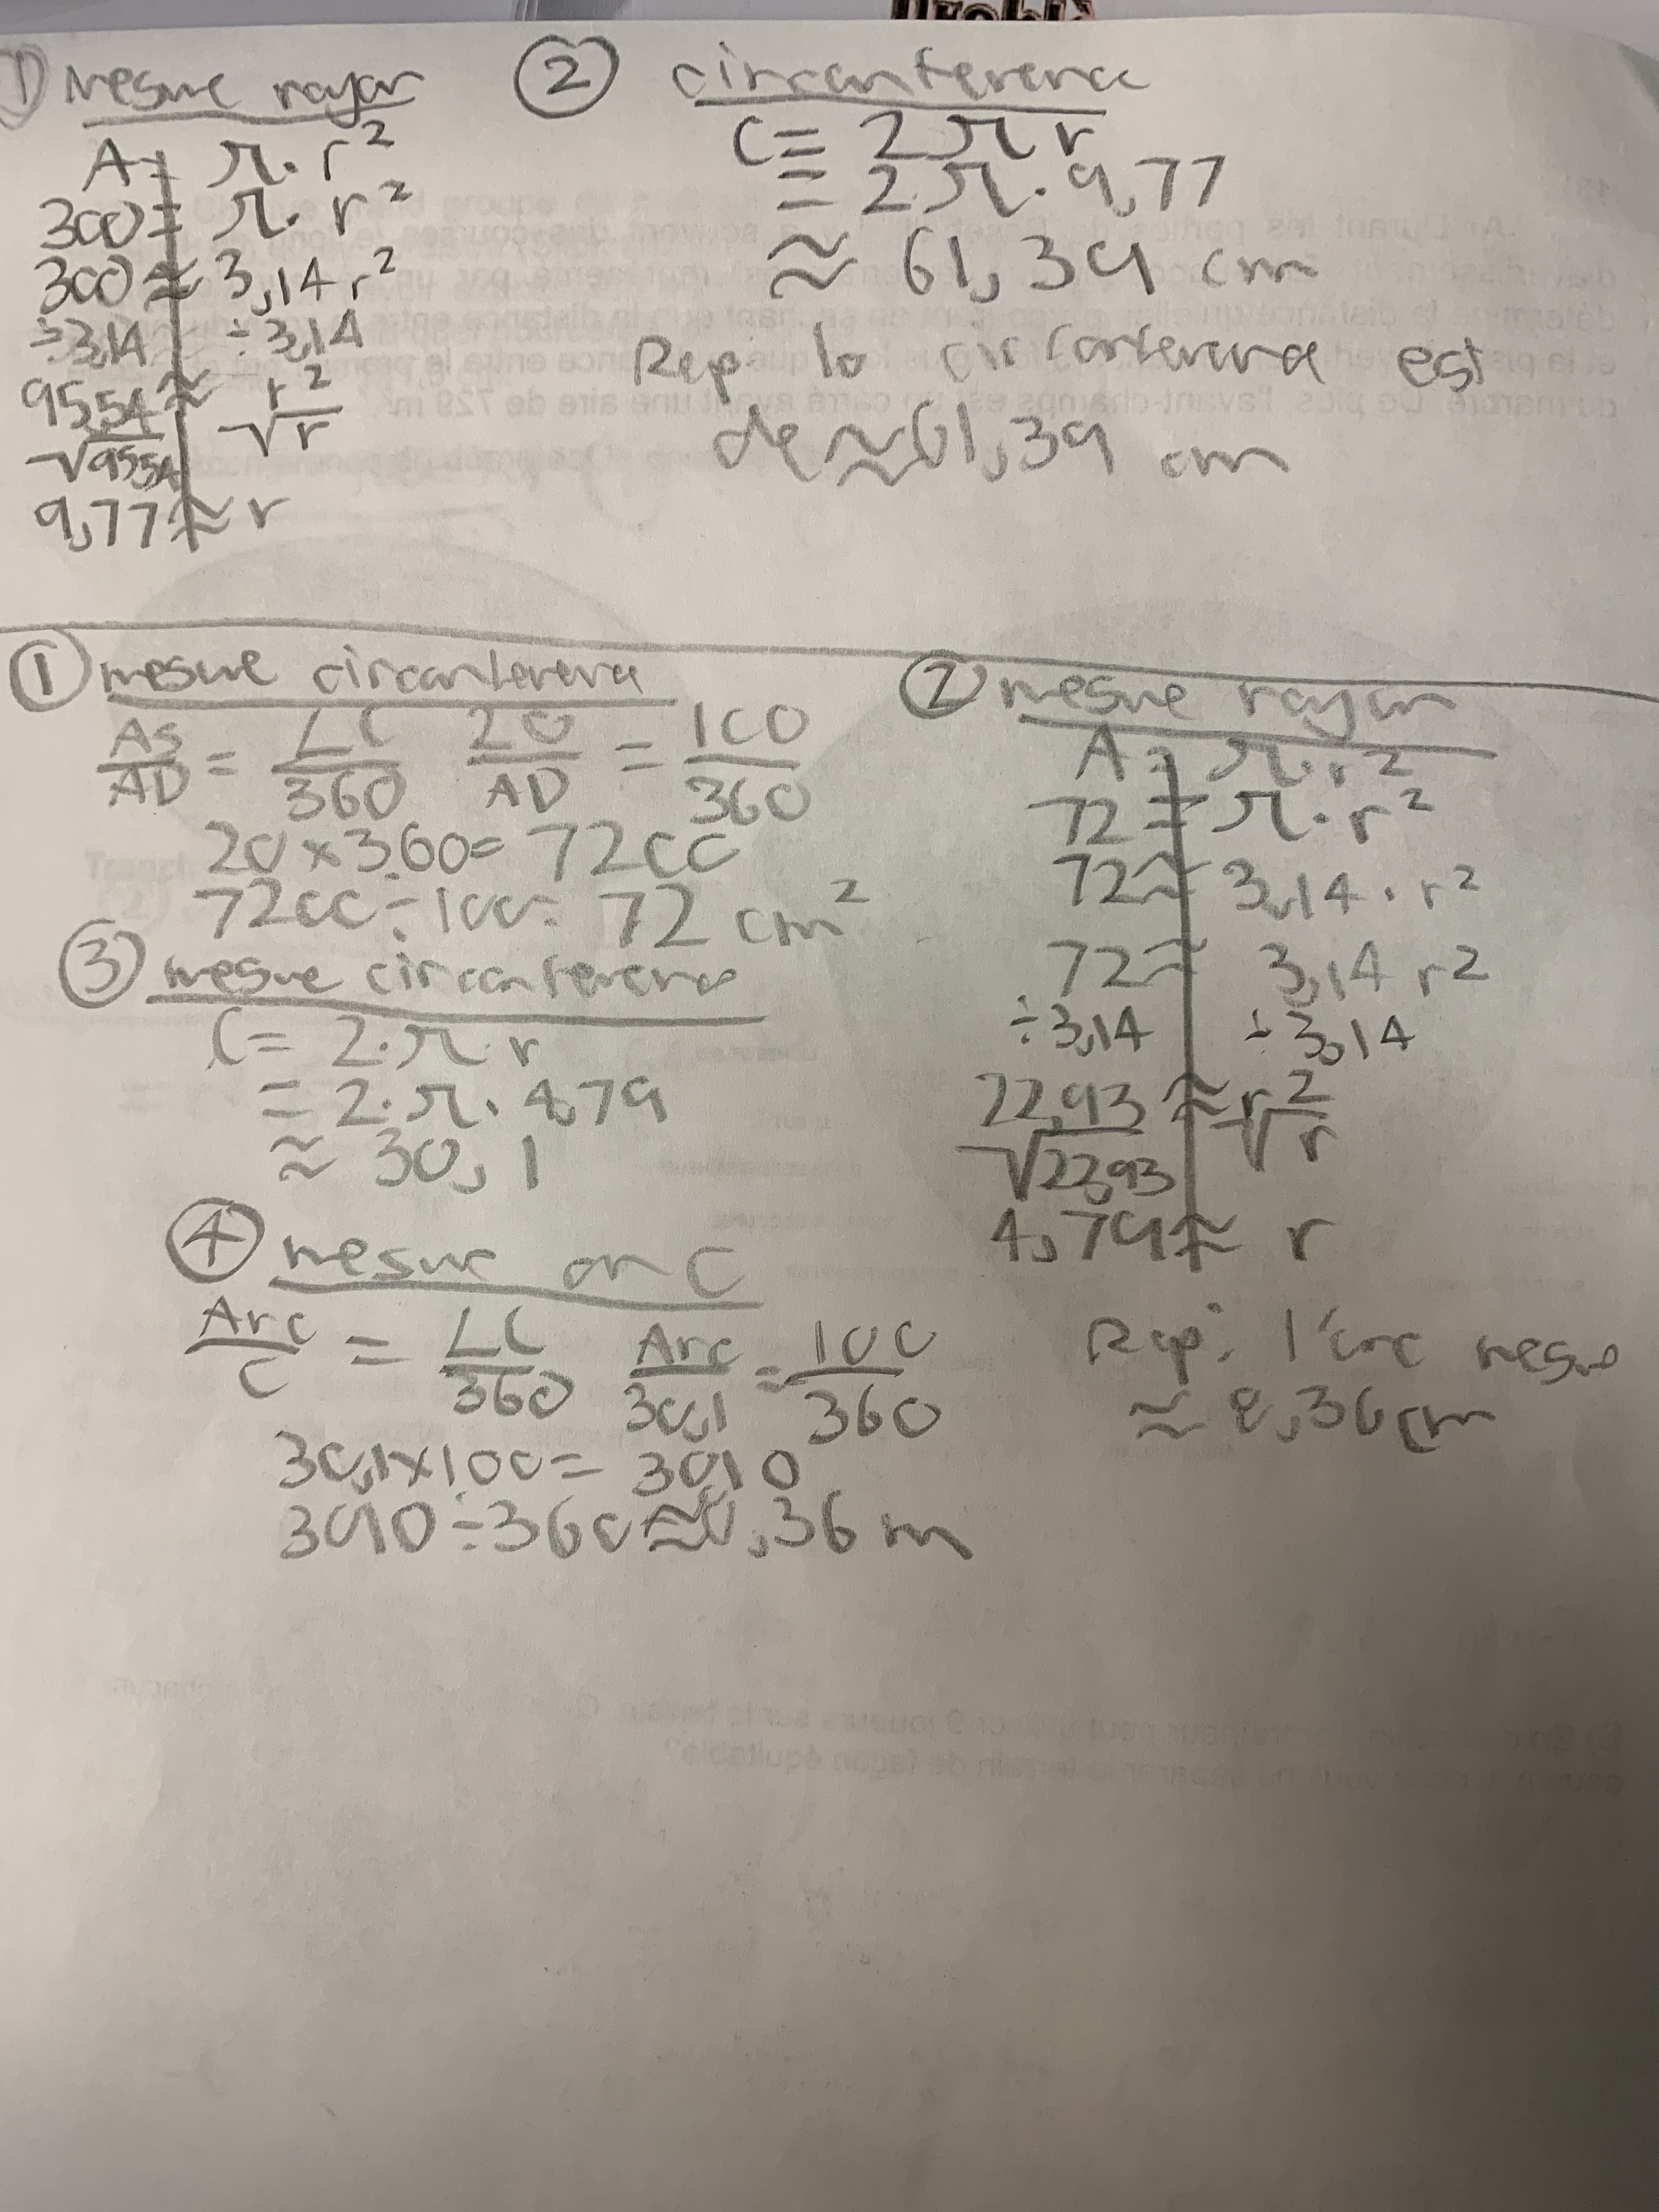 ① Mesure rayon
A = π · r²
300 = π · r²
300 ≈ 3,14 r²
÷3,14 ÷3,14
95,54 ≈ r²
√95,54 √r
9,77 ≈ r
② circonference
C = 2 π r
= 2 π · 9,77
≈ 61,39 cm
Rep: la circonference est
de ≈ 61,39 cm
① mesure circonference
AS/AD = ∠C/360 20/AD = 100/360
20 × 360 = 7200
7200 ÷ 100 = 72 cm²
② mesure rayon
A = π · r²
72 = π · r²
72 ≈ 3,14 · r²
72 ≈ 3,14 r²
÷3,14 ÷3,14
22,93 ≈ r²
√22,93 √r
4,79 ≈ r
③ mesure circonference
C = 2 · π · r
= 2 · π · 4,79
≈ 30,1
④ mesure arc C
Arc/C = ∠C/360 Arc/30,1 = 100/360
30,1 × 100 = 3010
3010 ÷ 360 ≈ 8,36 m
Rep: l'arc mesure
≈ 8,36 cm